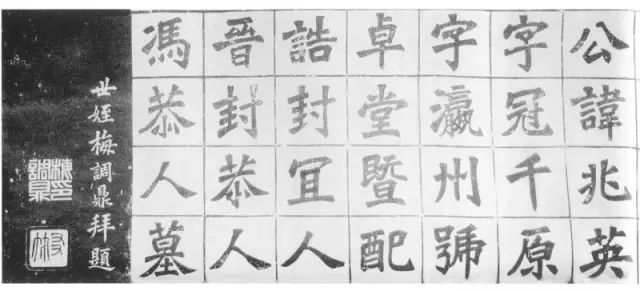 公諱兆英
字冠千原
字瀛州號
卓堂暨配
誥封冝人
晉封恭人
馮恭人墓
世姪梅調鼎拜題
梅印調鼎
友竹